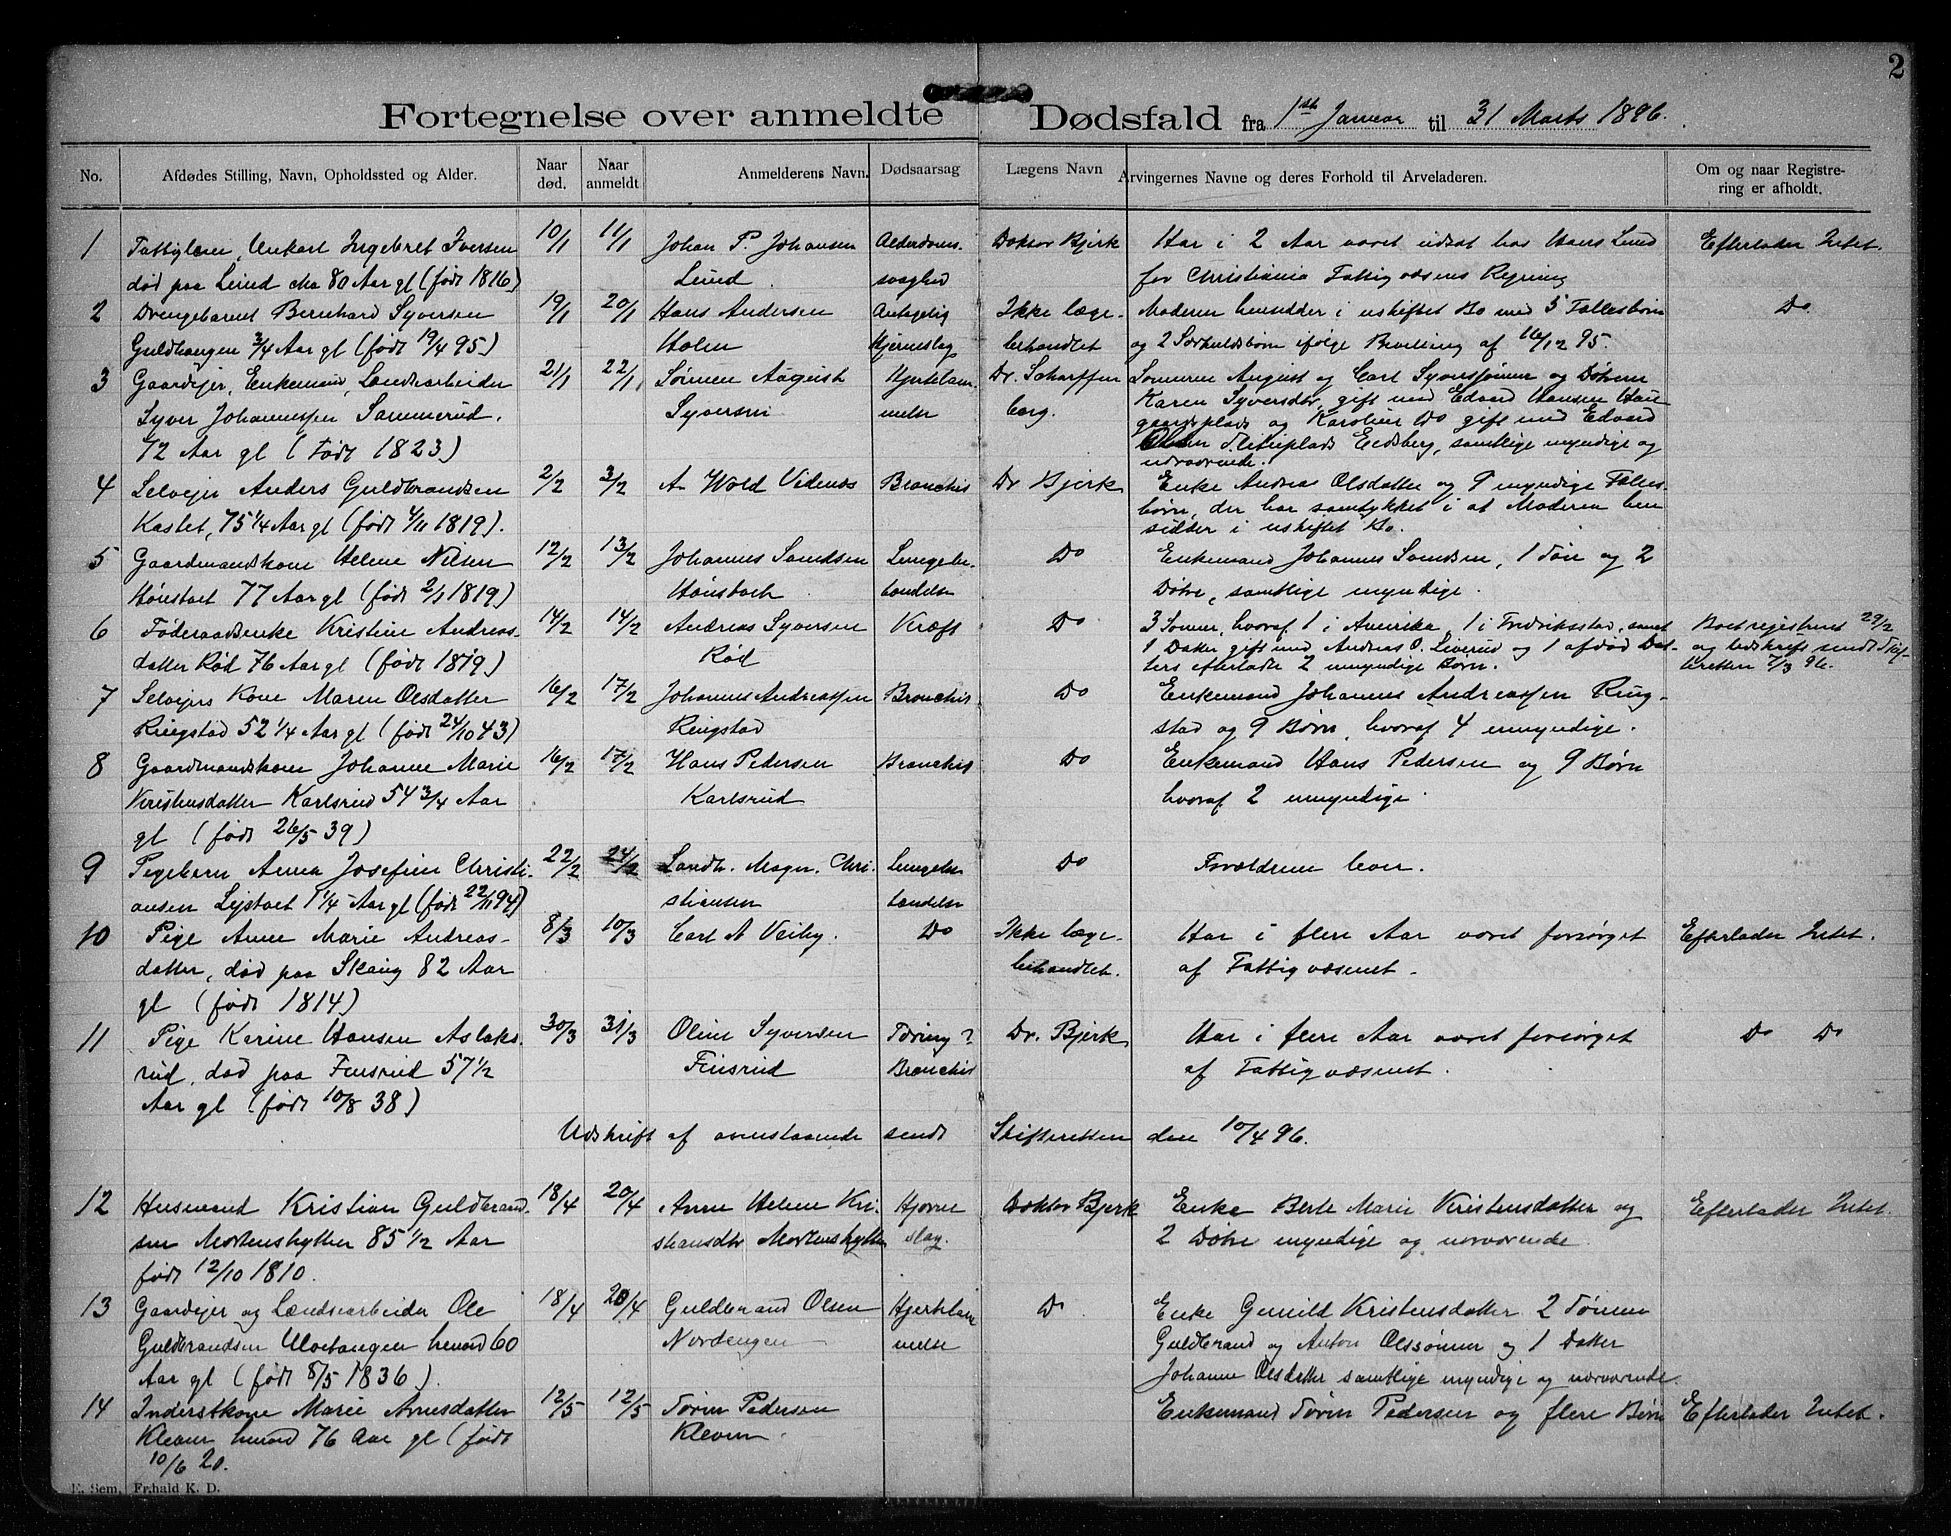 2
Fortegnelse over anmeldte Dødsfald fra 1ste Januar til 31 Marts 1896.
No. Afdødes Stilling, Navn, Opholdssted og Alder. Naar død. Naar anmeldt Anmelderens Navn. Dødsaarsag Lægens Navn Arvingernes Navne og deres Forhold til Arveladeren. Om og naar Registrering er afholdt.
1 Ingebret Iversen 10/1 11/1 Johan P. Johansen Alderdoms- Doktor Bjerk Har i 2 Aar været udsat hos Hans Lund Efterlader Intet.
død paa Lund ca 80 Aar gl (født 1816) Lund svaghed for Christiania Fattigvæsens Regning
2 Drengebarnet Bernhard Syversen 19/1 20/1 Hans Andersen Antagelig Ikke læge- Moderen hensidder i uskiftet Bo med 5 Fællesbørn Do
Guldhaugen 3/4 Aar gl (født 19/4 95) Holen Hjerneslag behandlet og 2 Særkuldsbørn ifølge Bevilling af 16/12 95.
3 Gaardejer, Enkemand, Lændsearbeider 21/1 22/1 Sønnen August Hjertelam- Dr. Scharffen- Sønnerne August og Carl Syverssønner og Døtrene
Syver Johannessen Sammerud. Syversen melse berg. Karen Syversdtr, gift med Edvard Hansen Hau-
gaardsplads og Karoline Do gift med Edvard
72 Aar gl (Født 1823) Olsen Eidsberg, samtlige myndige og
nærværende.
4 Selvejer Anders Guldbrandsen 2/2 3/2 A Wold Videnæs Bronchit Dr Bjerk Enke Andrea Olsdatter og 9 myndige Fælles-
Kastet, 75 1/4 Aar gl (født 4/11 1819). børn, der har samtykket i at Moderen hen
sidder i uskiftet Bo.
5 Gaardmandskone Helene Nilsen 12/2 13/2 Johannes Samdsen Lungebe- Do Enkemand Johannes Samdsen, 1 Søn og 2
Hønstvet 77 Aar gl (født 2/1 1819) Hønstvet tændelse Døtre, samtlige myndige.
6 Føderaadsenke Kristine Andreas- 14/2 14/2 Andreas Syversen Kræft Do 3 Sønner, hvoraf 1 i Amerika, 1 i Fredriksstad, samt Boet registreret 29/2
datter Rød 76 Aar gl (født 1819) Rød 1 Datter gift med Andreas O. Liverud og 1 afdød Dat- og udskrift sendt Skif-
ters efterladte 2 umyndige Børn. teretten 7/3 96.
7 Selvejers Kone Maren Olsdatter 16/2 17/2 Johannes Andreassen Bronchit Do Enkemand Johannes Andreassen Ring-
Ringstad 52 1/4 Aar gl (født 24/10 43) Ringstad stad og 9 Børn, hvoraf 4 umyndige.
8 Gaardmandskone Johanne Marie 16/2 17/2 Hans Pedersen Bronchit Do Enkemand Hans Pedersen og 9 Børn
Kristensdatter Karlsrud 54 3/4 Aar Karlsrud hvoraf 2 umyndige.
gl (født 26/5 39)
9 Pigebarn Anna Josefine Christi- 22/2 24/2 Landh. Magn. Chri- Lungebe- Do Forældrene lever.
ansen Lystvet 1 1/4 Aar gl (født 22/11 94) stiansen tændelse
10 Pige Anne Marie Andreas- 8/3 10/3 Carl A Veiby. Do Ikke læge- Har i flere Aar været forsørget Efterlader Intet.
datter, død paa Skaug 82 Aar behandlet. af Fattigvæsenet.
gl (født 1814)
11 Pige Karine Hansen Aslaks- 30/3 31/3 Oline Syversen Tæring? Dr. Bjerk Har i flere Aar været forsørget Do Do
rud, død paa Finsrud 57 1/2 Finsrud Bronchit af Fattigvæsenet.
Aar gl (født 10/8 38)
Udskrift af ovenstaaende sendt Skifteretten den 10/4 96.
12 Husmand Kristian Guldbrand- 18/4 20/4 Anne Helene Kri- Hjerne Doktor Bjerk Enke Berte Marie Kristensdatter og Efterlader Intet.
sen Mortenshytten 85 1/2 Aar stiansdtr Mortenshytten slag. 2 Døtre myndige og nærværende
født 12/10 1810.
13 Gaardejer og Lændsearbeider Ole 18/4 20/4 Guldbrand Olsen Hjertelam Do Enke Gunild Kristensdatter 2 Sønner
Guldbrandsen Ulvehaugen henved 60 Nordengen melse Guldbrand og Anton Olssønner og 1 Datter
Aar gl (født 8/5 1836). Johanne Olsdatter samtlige myndige og nærværende.
14 Inderstkone Marie Arnesdatter 12/5 12/5 Søren Pedersen Enkemand Søren Pedersen og flere Børn Efterlader Intet.
Kleven henved 76 Aar gl (født Kleven.
10/6 20.
E. Sem, Fr.hald K. D.